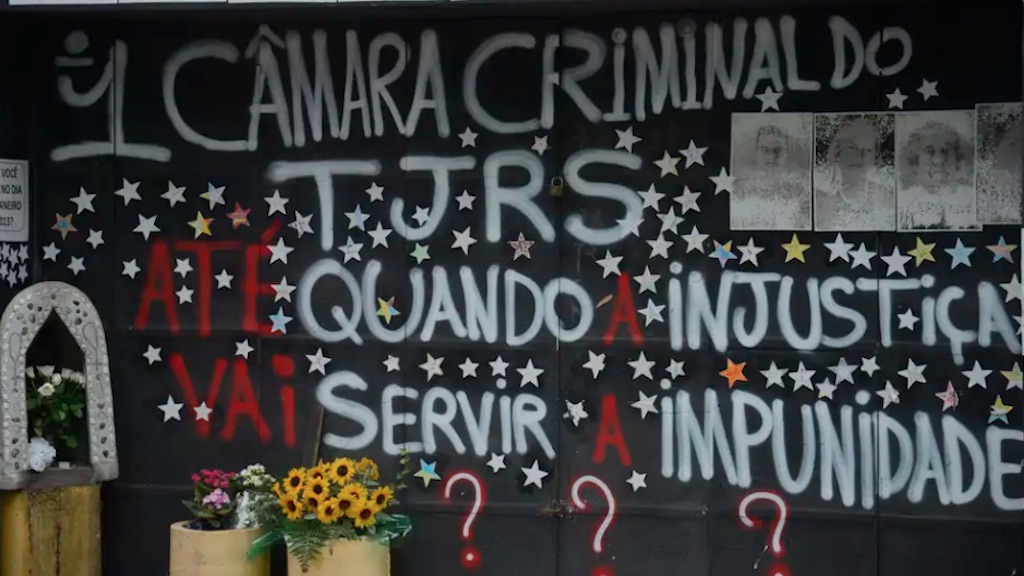 1ª CÂMARA CRIMINAL DO
TJRS
ATÉ QUANDO A INJUSTIÇA
VAI SERVIR A IMPUNIDADE
? ? ?
VOCÊ
NO DIA
ANEIRO
013?